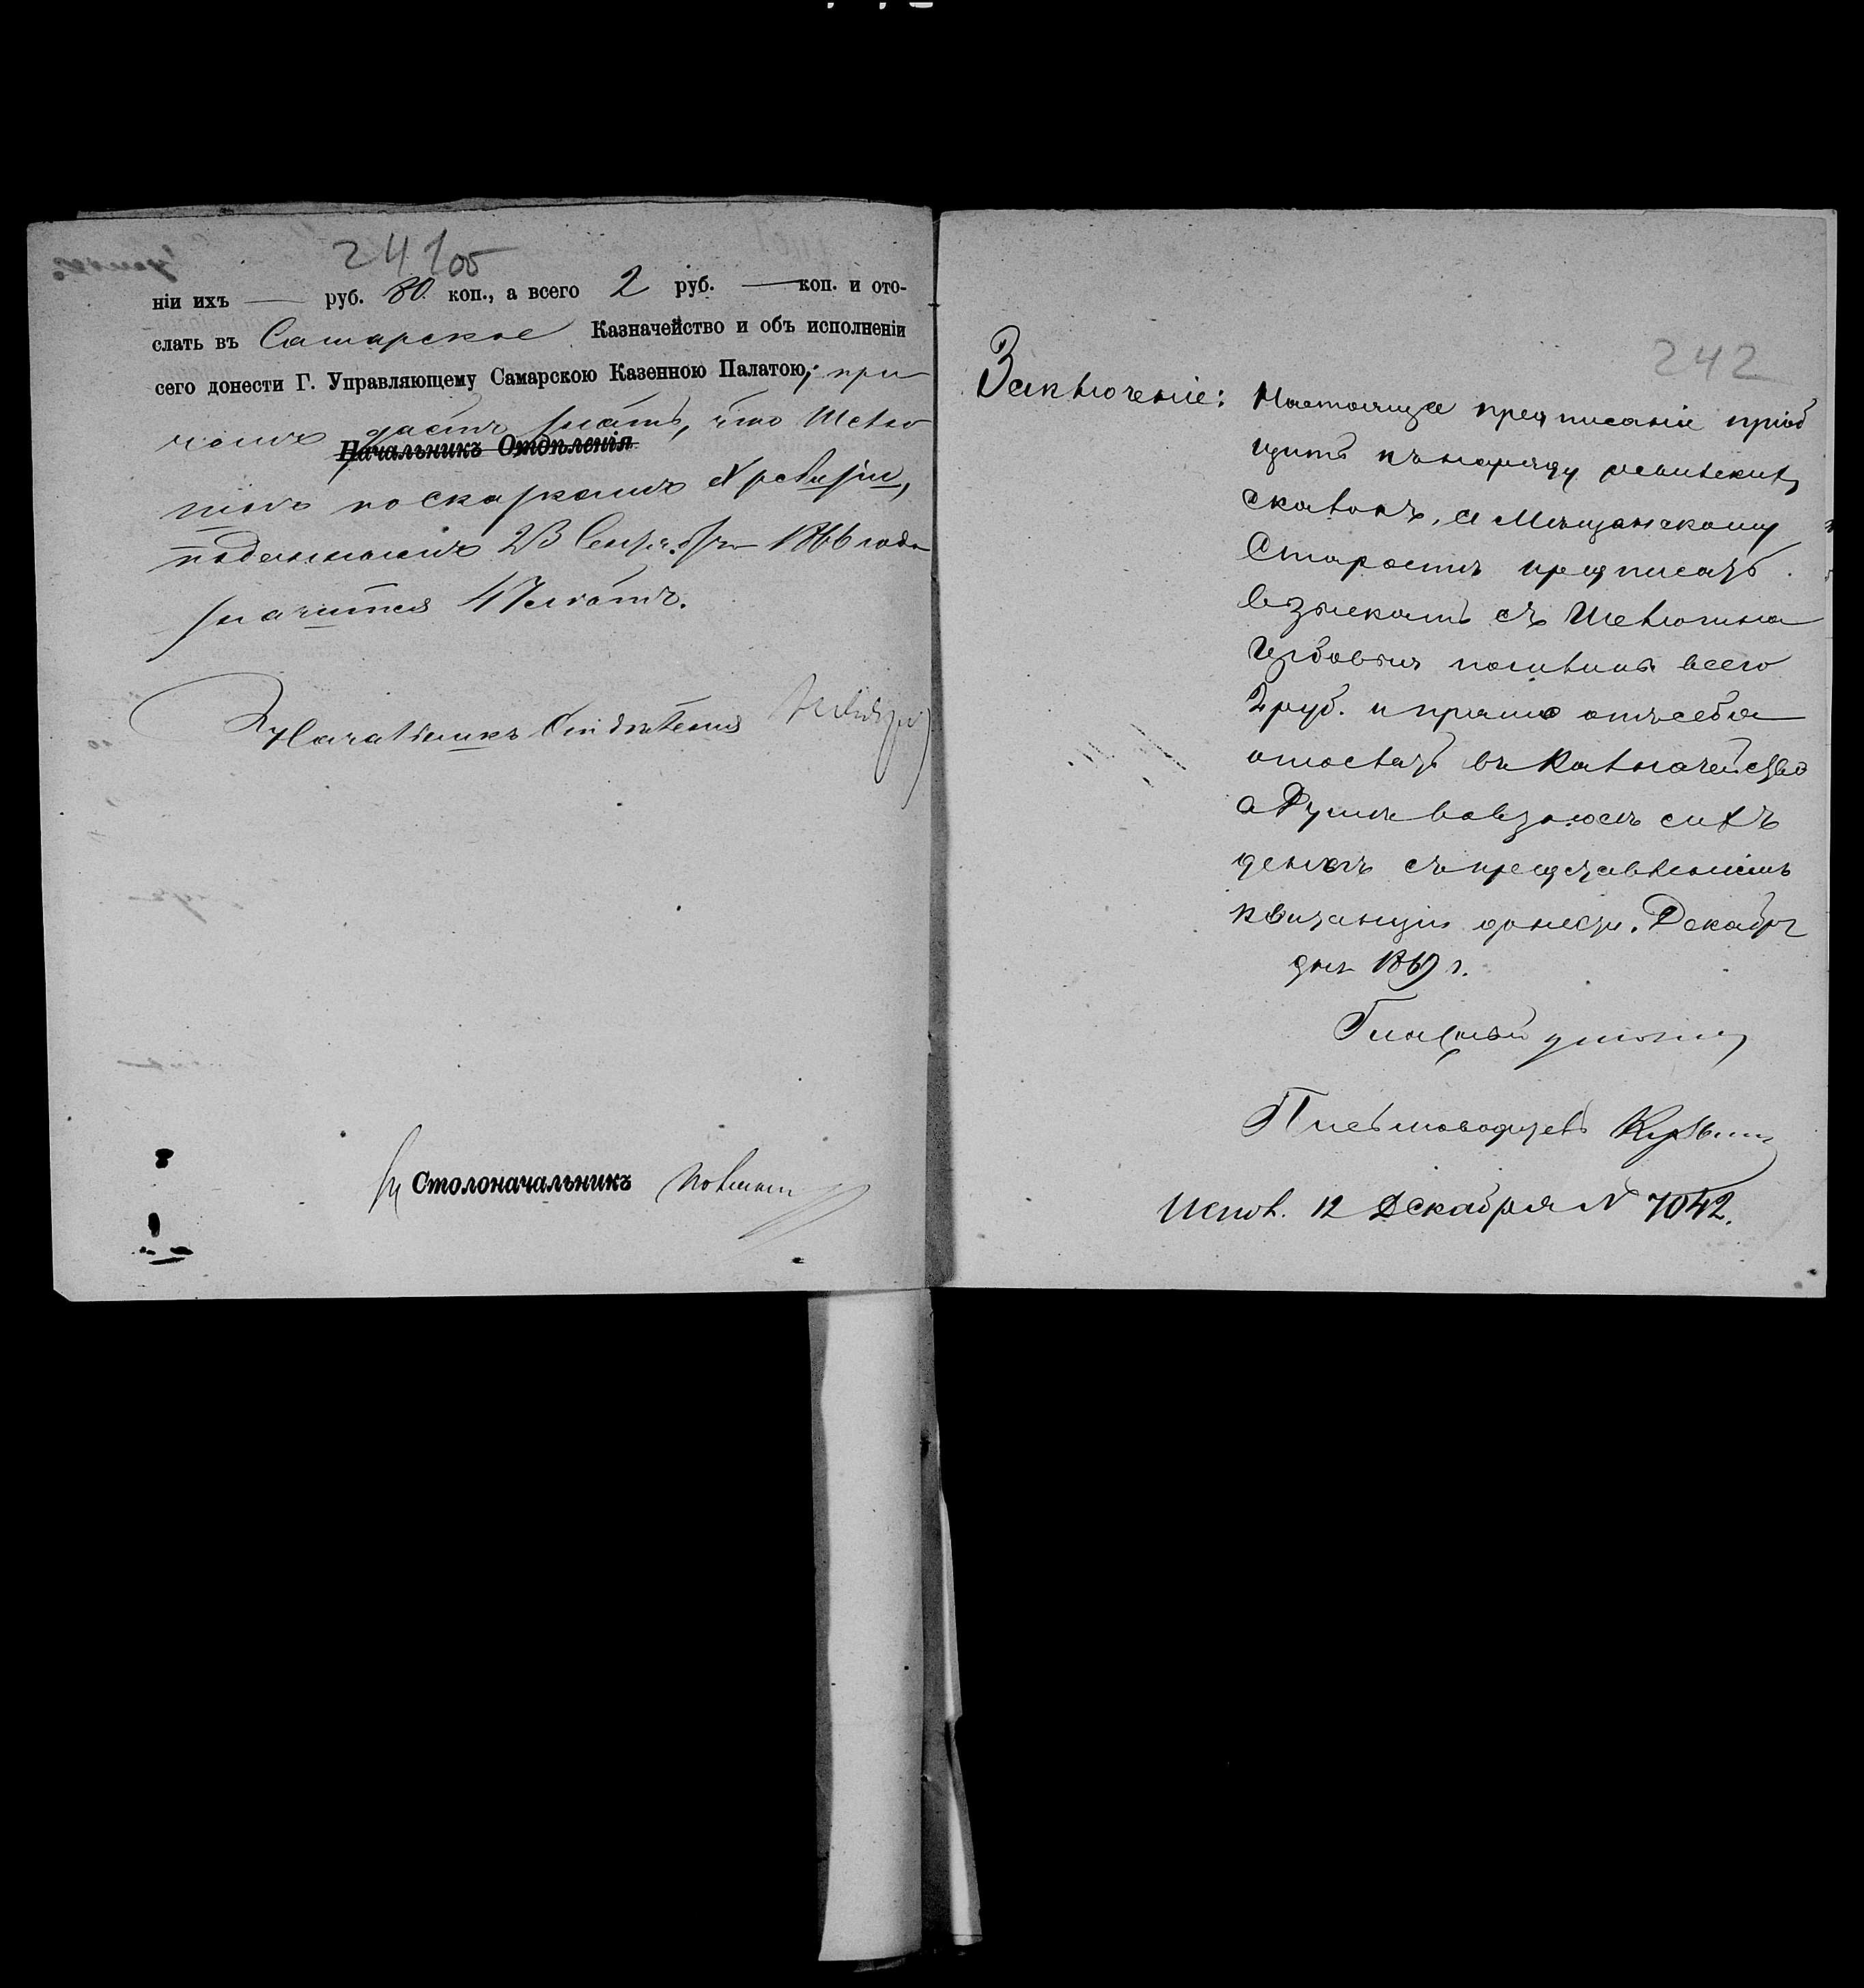 241об
ніи ихъ — руб. 80 коп., а всего 2 руб. — коп. и ото-
слать въ Самарское Казначейство и объ исполненіи
сего донести Г. Управляющему Самарскою Казенною Палатою, при
чемъ даетъ знать, что Шевлю
Начальникъ Отдѣленія
гинъ по сказкамъ X ревизіи,
поданнымъ 23 1866 года
значится лѣтъ.
Начальникъ Отдѣленія
Столоначальникъ
242
Заключеніе: Настоящее предписаніе пріоб
щить къ наряду ревизскихъ
сказокъ, а Мѣщанскому
Старостѣ предписать
взыскать съ Шевлюгина
гербовыхъ пошлинъ всего
2 руб. и прямо отъ себя
отослать въ Казначейство
а Думѣ о взносѣ сихъ
денегъ съ представленіемъ
квитанціи донести. Декабря
дня 1869 г.
Письмоводитель
Испол. 12 Декабря № 7042.